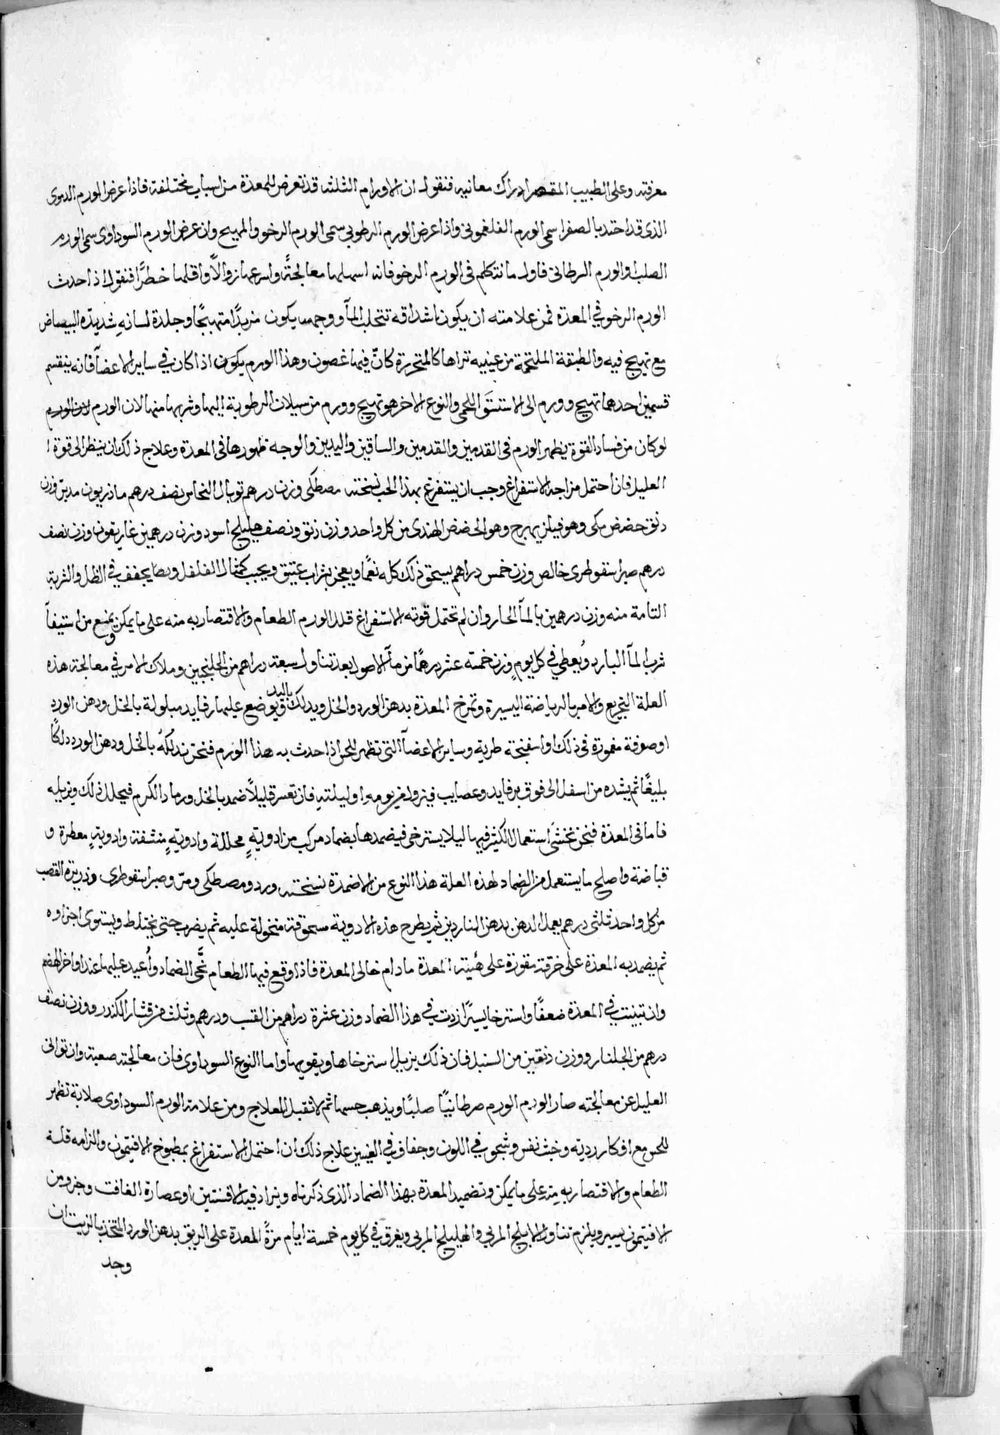 معرفته وعلى الطبيب المقصر ادراك معانيه فنقول ان الاورام الثلثه قد تعرض للمعدة من اسباب مختلفة فاذا عرض الورم الدموى
الذى قد احتد بالصفرا سمى الورم الفلغمونى واذا عرض الورم الرطوبى سمى الورم الرخو والمهيج وان عرض الورم السوداوى سمى الورم
الصلب او الورم السرطانى فاول ما نتكلم فى الورم الرخو فانه اسهلها معالجةً واسرعها زوالًا واقلها خطرًا فنقول اذا حدث
الورم الرخو فى المعدة فمن علامته ان يكون باشداقه تتحلب المآ ووجهه يكون متربدًا متهبجًا وجلدة لسانه شديدة البياض
مع تهبج فيه والطبقة الملتحمة من عينيه تراها كالمتحيرة كانّ فيها غصون وهذا الورم يكون اذا كان فى ساير الاعضآ فانه ينقسم
قسمين احدها تهبج وورم الى الاستسقى اللحمى والنوع الاخر هو تهبج وورم من سيلان الرطوبة اليها وشربها منها لان الورم
لو كان من فساد القوة يظهر الورم فى القدمين والقدمين والساقين واليدين والوجه ظهورها فى المعدة وعلاج ذلك ان ينظر الى قوة ا
العليل فان احتمل مزاجه الاستفراغ وجب ان يستفرغ بهذا الحب نسخته مصطكى وزن درهم توبال النحاس نصف درهم ماذريون مدبر وزن
دنق حضض مكى وهو فيلزهرج وهو الحضض الهندى من كل واحد وزن دنق ونصف هليلج اسود وزن درهمين غاريقون وزن نصف
درهم صبر اسقوطرى خالص وزن خمس دراهم يسحق ذلك كله نعمًا ويعجن بشراب عتيق ويحبب كمثال الفلفل ويجفف فى الظل والشربة
التامة منه وزن درهمين بالمآ الحار وان لم تحتمل قوته الاستفراغ قلل الورم الطعام والاقتصار به منه على ما يمكن ويمنع من استيفآ
شرب المآ البارد ويُعطى فى كل يوم وزن خمسة عشر درهمًا من مآ الاصول بعد تناول سبعة دراهم من الجلنجبين وملاك الامر فى معالجة هذه
العلة التجويع والامر بالرياضة اليسيرة وتمرخ المعدة بدهن الورد والخل ويدلك باليد ويوضع عليها رفايد مبلولة بالخل ودهن الورد
او صوفة مغموة فى ذلك واسفنجة طرية وساير الاعضآ التى تظهر للحس اذا حدث به هذا الورم فنحن ندلكه بالخل ودهن الورد دلكًا
بليغًا ثم يشده من اسفل الى فوق برفايد وعصايب فيزول فى يومه او ليلته فان تعسر قليلًا ضمد بالخل ورماد الكرم فيحلل ذلك ويزيله
فاما فى المعدة فنحن نخشَى استعمال الكثير فيها ليلا يسترخى فيضمدها بضماد مركب من ادويةٍ محللة وادويةٍ منشفة وادويةٍ معطرة و
قباضة واصلح ما يستعمل من الضماد لهذه العلة هذا النوع من الاضمدة نسخته ورد ومصطكى ومرّ وصبر اسقوطرى وذريرة القصب
من كل واحد ثلثى درهم يعمل الدهن بدهن الناردين ثم يطرح هذه الادوية مسحوقة منخولة عليه ثم يضرب حتى يختلط ويستوى اجزاوه
ثم يضمد به المعدة على خرقة مقورة على هيئة المعدة ما دام خالى المعدة فاذا وقع فيها الطعام نحَّى الضماد وأُعيد عليها عند اواخر الهضم
وان تبينت فى المعدة ضعفًا واسترخا يسيرًا زدت فى هذا الضماد وزن عشرة دراهم من القسب ودرهم وثلث من قشار الكندر ووزن نصف
درهم من الجلنار ووزن دنقين من السنبل فان ذلك يزيل استرخاها ويقويها واما النوع السوداوى فان معالجته صعبة وان توانى
العليل عن معالجته صار الورم الورم سرطانيًا صلبًا ويذهب حسها ثم لا تقبل العلاج ومن علامة الورم السوداوى صلابة تظهر
للحس مع افكار ردية وخبث نفس وشحوب فى اللون وجفاف فى العينين علاج ذلك ان احتمل الاستفراغ بمطبوخ الافتيمون والزامه قلة
الطعام والاقتصار به منه على ما يمكن وتضميد المعدة بهذا الضماد الذى ذكرناه ويزاد فيه الافسنتين او عصارة الغافت وجزو من
الافتيمون يسير ويلزم تناول الاملج المربى والهليلج المربى ويغرق فى كل يوم خمسة ايام مرةً المعدة على الريق بدهن الورد المتخذ بالزيت ان
وجد